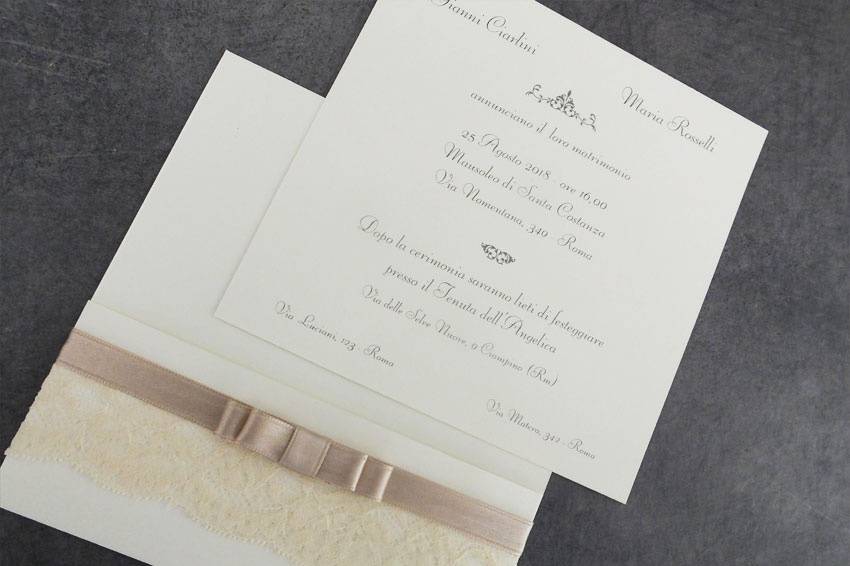 Gianni Ciarlini
Maria Rosselli
annunciano il loro matrimonio
25 Agosto 2018 ore 16,00
Mausoleo di Santa Costanza
Via Nomentano, 349 Roma
Dopo la cerimonia saranno lieti di festeggiare
presso il Tenuta dell'Angelica
Via delle Selve Nuove, 9 Ciampino (Rm)
Via Luciani, 123 - Roma
Via Matera, 342 - Roma